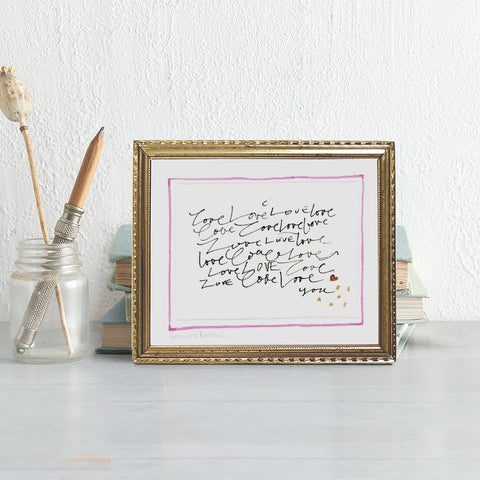 Love Love Love love
love Love love love
Love Love love
love Love Love
Love Love Love
Love Love Love
you